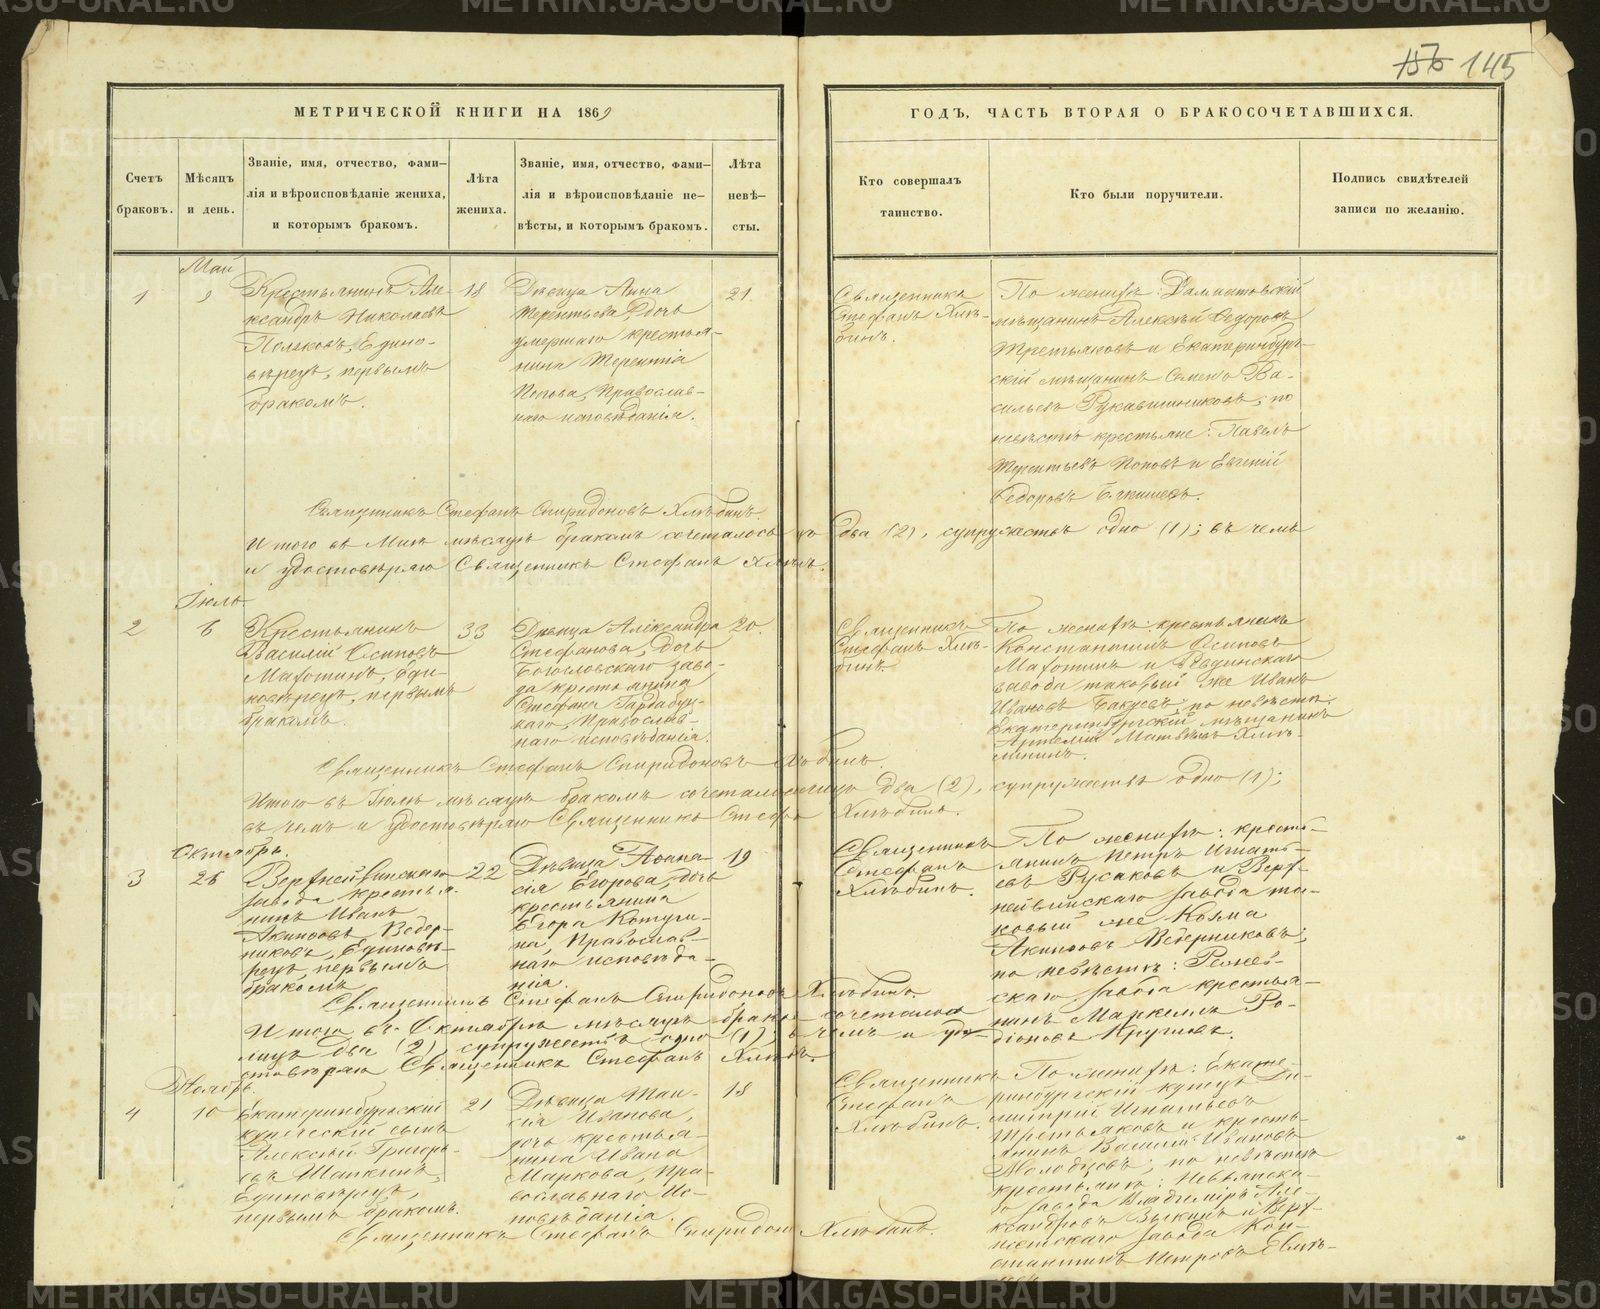 METRIKI.GASO-URAL.RU
156 145
МЕТРИЧЕСКОЙ КНИГИ НА 1869
ГОДЪ, ЧАСТЬ ВТОРАЯ О БРАКОСОЧЕТАВШИХСЯ.
Счетъ браковъ.
Мѣсяцъ и день.
Званіе, имя, отчество, фами-
лія и вѣроисповѣданіе жениха,
и которымъ бракомъ.
Лѣта жениха.
Званіе, имя, отчество, фами-
лія и вѣроисповѣданіе не-
вѣсты, и которымъ бракомъ.
Лѣта невѣ-
сты.
Кто совершалъ
таинство.
Кто были поручители.
Подпись свидѣтелей
записи по желанію.
Май
1
9
Крестьянинъ Але-
ксандръ Николаевъ
Поляковъ, Едино-
вѣрецъ, первымъ
бракомъ.
18
Дѣвица Анна
Терентьева, дочь
умершаго крестья-
нина Терентія
Попова, Православ-
наго исповѣданія.
21
Священникъ
Стефанъ Хлѣ-
бинъ.
По женихѣ: Далматовскій
мѣщанинъ Алексѣй Ѳедоровъ
Третьяковъ и Екатеринбург-
скій мѣщанинъ Семенъ Ва-
сильевъ Рукавишниковъ; по
невѣстѣ крестьяне: Павелъ
Терентьевъ Поповъ и Евгеній
Ѳедоровъ
Священникъ Стефанъ Спиридоновъ Хлѣбинъ.
Итого въ Маѣ мѣсяцѣ бракомъ сочеталось лицъ два (2), супружествъ одно (1); въ чемъ
и удостовѣряю Священникъ Стефанъ Хлѣб.
Іюль.
2
6
Крестьянинъ
Василій Осиповъ
Махотинъ, Еди-
новѣрецъ, первымъ
бракомъ.
33
Дѣвица Александра
Стефанова, дочь
Богословскаго заво-
да крестьянина
Стефана
Православ-
наго исповѣданія.
20.
Священникъ
Стефанъ Хлѣ-
бинъ.
По женихѣ: крестьянинъ
Константинъ Осиповъ
Махотинъ и Ревдинскаго
завода таковый же Иванъ
Ивановъ по невѣстѣ:
Екатеринбургскій мѣщанинъ
Артемій Матвѣевъ
Священникъ Стефанъ Спиридоновъ Хлѣбинъ.
Итого въ Іюлѣ мѣсяцѣ бракомъ сочеталось лицъ два (2), супружествъ одно (1);
въ чемъ и удостовѣряю Священникъ Стефанъ Хлѣбинъ.
Октябрь.
3
26
Верхнейвинскаго
завода крестья-
нинъ Иванъ
Акинфовъ Ведер-
никовъ, Единовѣ-
рецъ, первымъ
бракомъ.
22
Дѣвица Аѳана-
сія Егорова, дочь
крестьянина
Егора Котуги-
на, Православ-
наго исповѣда-
нія.
19
Священникъ
Стефанъ
Хлѣбинъ.
По женихѣ: кресть-
янинъ Петръ Игнать-
евъ Русаковъ и Верх-
нейвинскаго завода та-
ковый же Козма
Акинфовъ Ведерниковъ;
по невѣстѣ: Режев-
скаго завода крестья-
нинъ Маркелъ Ро-
діоновъ
Священникъ Стефанъ Спиридоновъ Хлѣбинъ.
Итого въ Октябрѣ мѣсяцѣ бракомъ сочеталось
лицъ два (2) супружествъ одно (1); въ чемъ и удо-
стовѣряю Священникъ Стефанъ Хлѣбинъ.
Ноябрь
4
10
Екатеринбургскій
купеческій сынъ
Алексѣй Григорь-
евъ Шапкинъ,
Единовѣрецъ,
первымъ бракомъ.
21
Дѣвица Таи-
сія Иванова,
дочь крестья-
нина Ивана
Маркова, Пра-
вославнаго Ис-
повѣданія.
18
Священникъ
Стефанъ
Хлѣбинъ.
По женихѣ: Екате-
ринбургскій купецъ Ди-
митрій Игнатьевъ
Третьяковъ и кресть-
янинъ Василій Ивановъ
Молодцовъ; по невѣстѣ
крестьяне: Невьянска-
го завода Владиміръ Але-
ксандровъ и Верх-
завода Кон-
стантинъ Петровъ
Священникъ Стефанъ Спиридоновъ Хлѣбинъ.